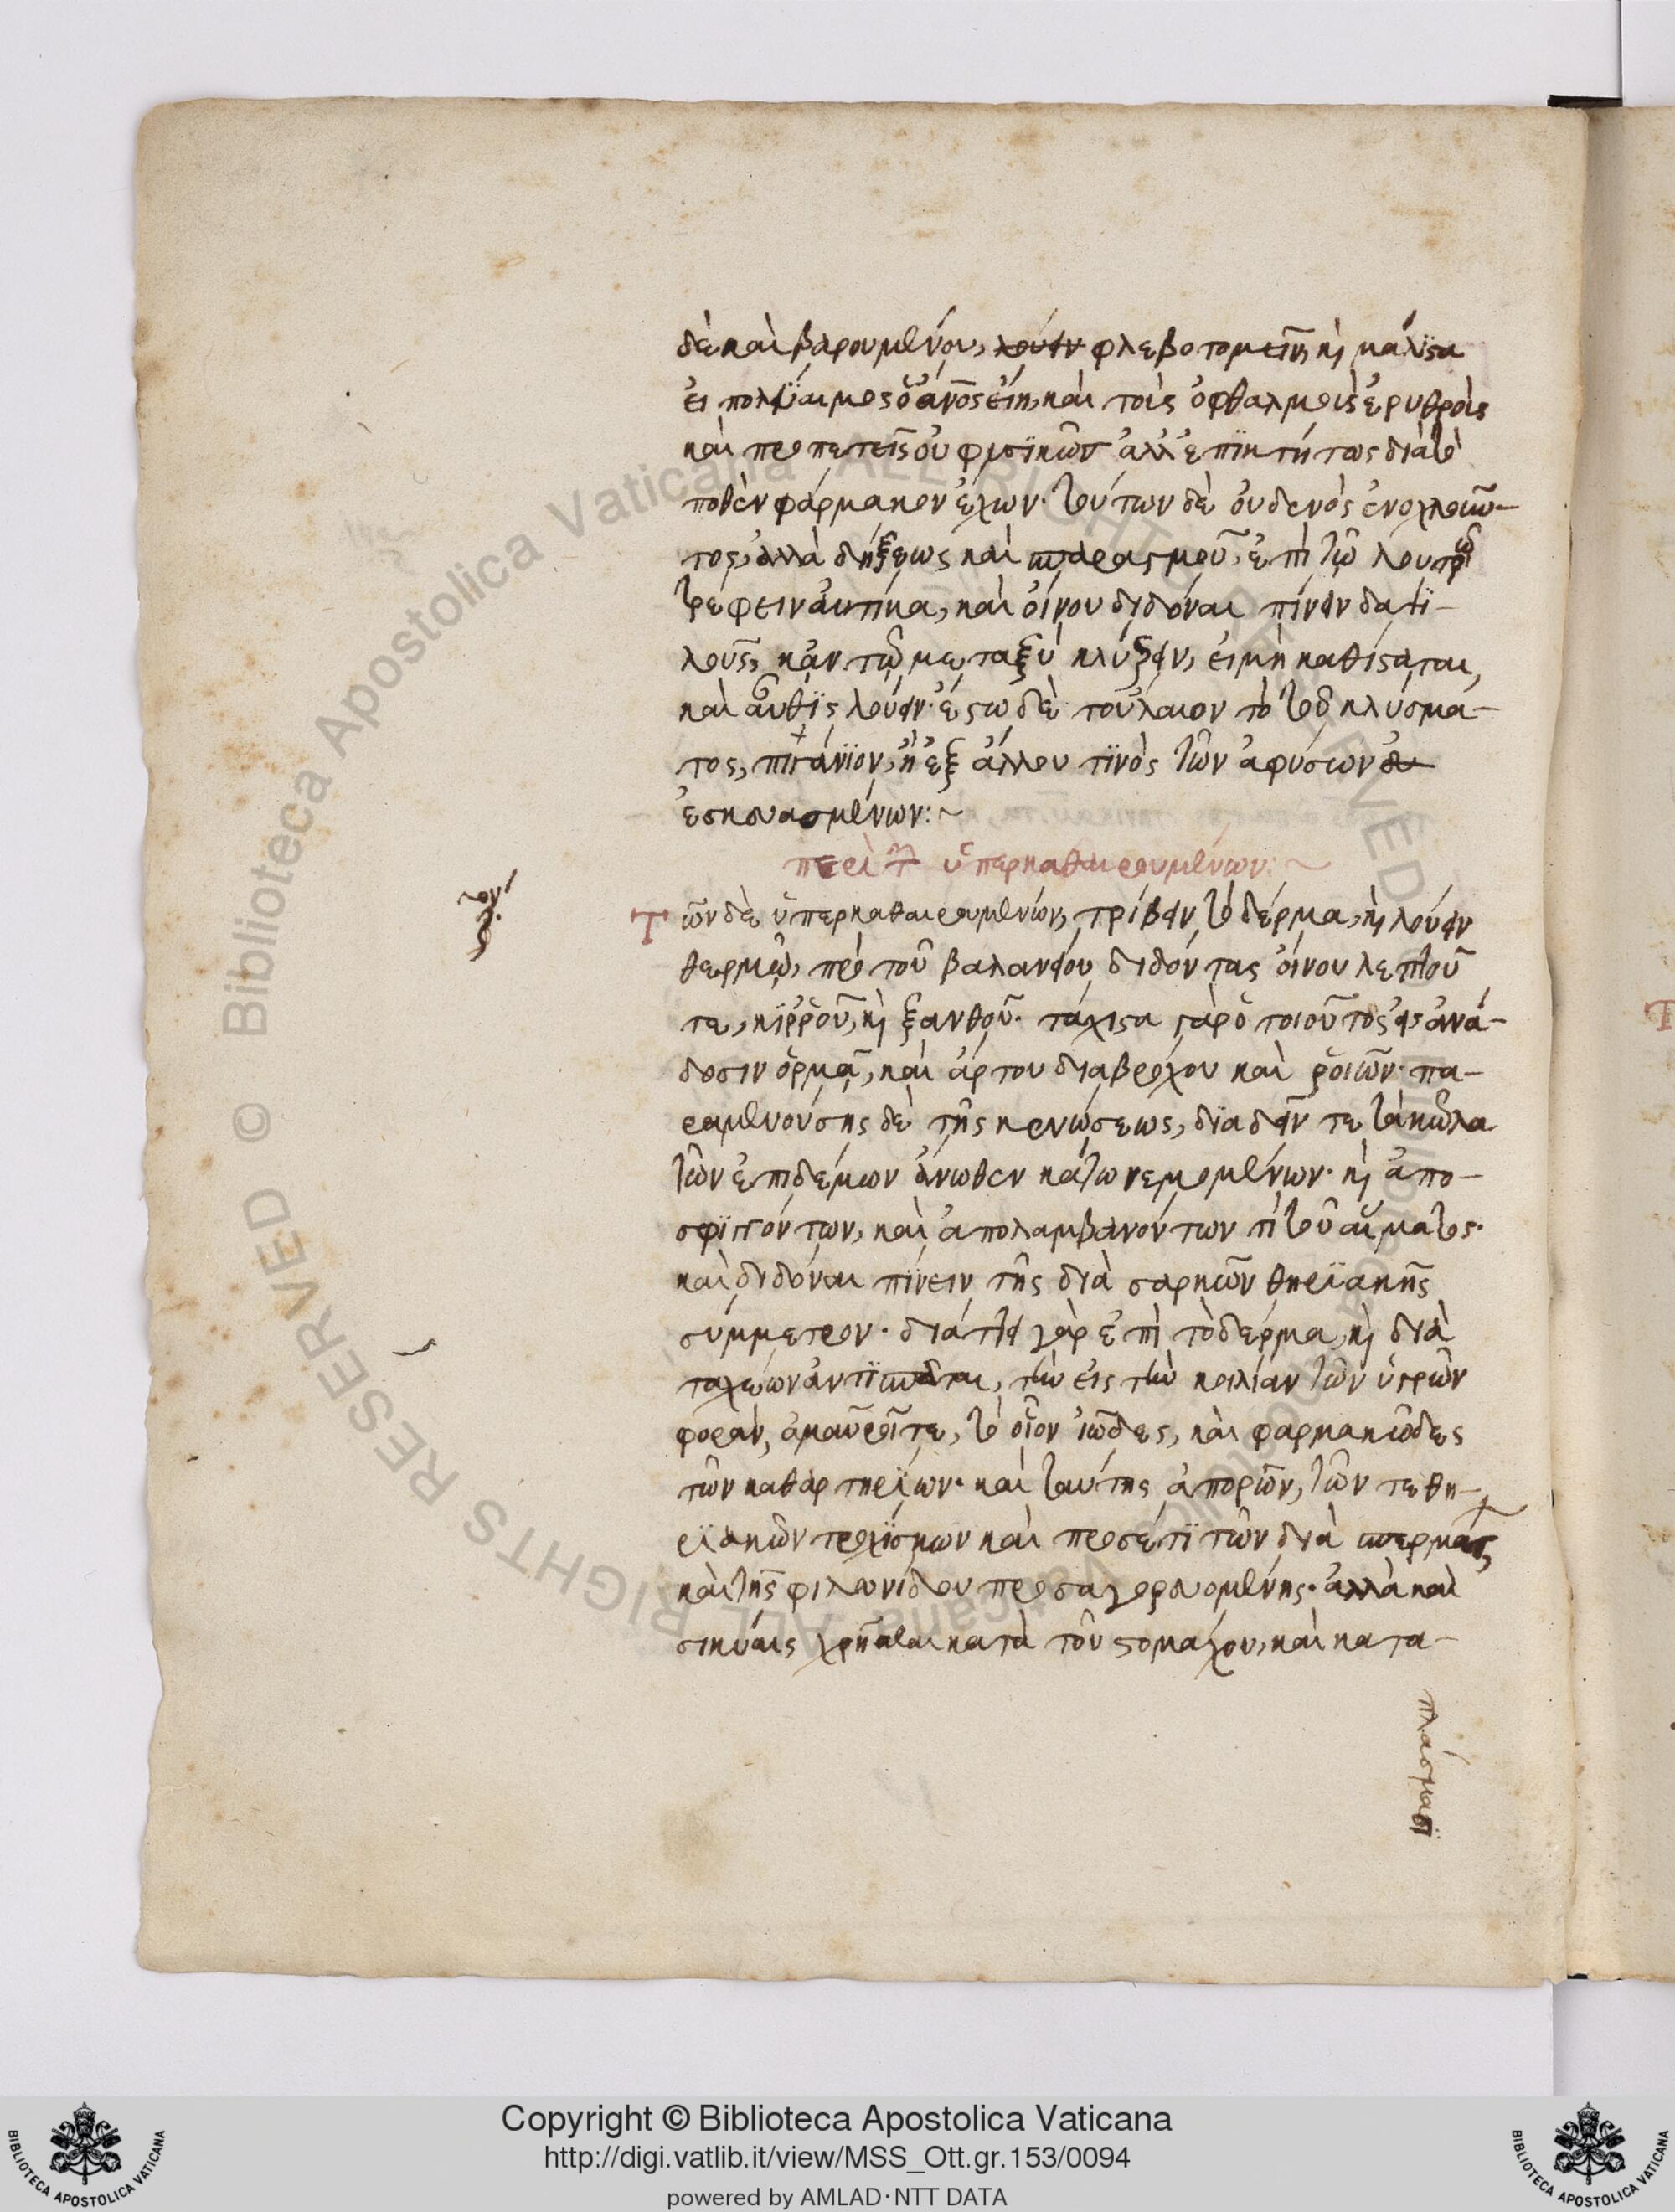 δὲ καὶ βαρουμένου, λούειν φλεβοτομεῖν, κὶ μάλϊστα
εἰ πολύαιμος ὁ ἄνος εἴη, καὶ τοῖς ὀφθαλμοῖς ἐρυθροῖς
καὶ προπετεῖς οὐ φυσϊκῶς ἀλλ' ἐπϊκτήτως διὰ τὸ
ποθὲν φάρμακον ἔχων. τούτων δὲ οὐδενὸς ἐνοχλοῦν-
τος, ἀλλὰ δήξεως καὶ σπαρασμοῦ, ἐπὶ τῷ λουτρῷ
τρέφειν αὐτίκα, καὶ οἴνου διδόναι πίνειν δαψϊ-
λοῦς, κἀν τῷ μεταξὺ κλύζειν, εἰ μὴ καθίσταται,
καὶ αὖθϊς λούειν. ἔστω δὲ τοὔλαιον τὸ τοῦ κλύσμα-
τος, πηγάνϊον, ἢ ἐξ ἄλλου τϊνὸς τῶν ἀφύσων
ἐσκευασμένων:~
περὶ τῶν ὑπερκαθαιρουμένων:~
Τῶν δὲ ὑπερκαθαιρουμένων, τρίβειν τὸ δέρμα, κὶ λούειν
θερμῷ, πρὸ τοῦ βαλανείου διδόντας οἴνου λεπτοῦ
τε, κϊρροῦ, κὶ ξανθοῦ. τάχιστα γὰρ ὁ τοιοῦτος εἰς ἀνά-
δοσιν ὁρμᾷ, καὶ ἄρτου διαβρόχου καὶ ῥοιῶν. πα-
ραμενούσης δὲ τῆς κενώσεως, δϊαδεῖν τε τὰ κῶλα
τῶν ἐπιδέσμων ἄνωθεν κάτω νεμομένων. κὶ ἀπο-
σφϊγγόντων, καὶ ἀπολαμβανόντων τὶ τοῦ αἵματος.
καὶ διδόναι πίνειν τῆς διὰ σαρκῶν θηρϊακῆς
σύμμετρον. διάττει γὰρ ἐπὶ τὸ δέρμα, κὶ διὰ
ταχέων ἀντϊσπᾶται, τὴν εἰς τὴν κοιλίαν τῶν ὑγρῶν
φορὰν, ἀμαυροῖ τε, τὸ οἷον ἰῶδες, καὶ φαρμακῶδες
τῶν καθαρτηρίων. καὶ ταύτης ἀποριῶν, τῶν τε θη-
ρϊακῶν τροχίσκων καὶ προσέτϊ τῶν διὰ σπερμάτ
καὶ τῆς φιλωνίδου προσαγορευομένης. ἀλλὰ καὶ
σικύαις χρῆσθαι κατὰ τοῦ στομάχου, καὶ κατα-
πλάσμασϊ
Copyright © Biblioteca Apostolica Vaticana
http://digi.vatlib.it/view/MSS_Ott.gr.153/0094
powered by AMLAD·NTT DATA